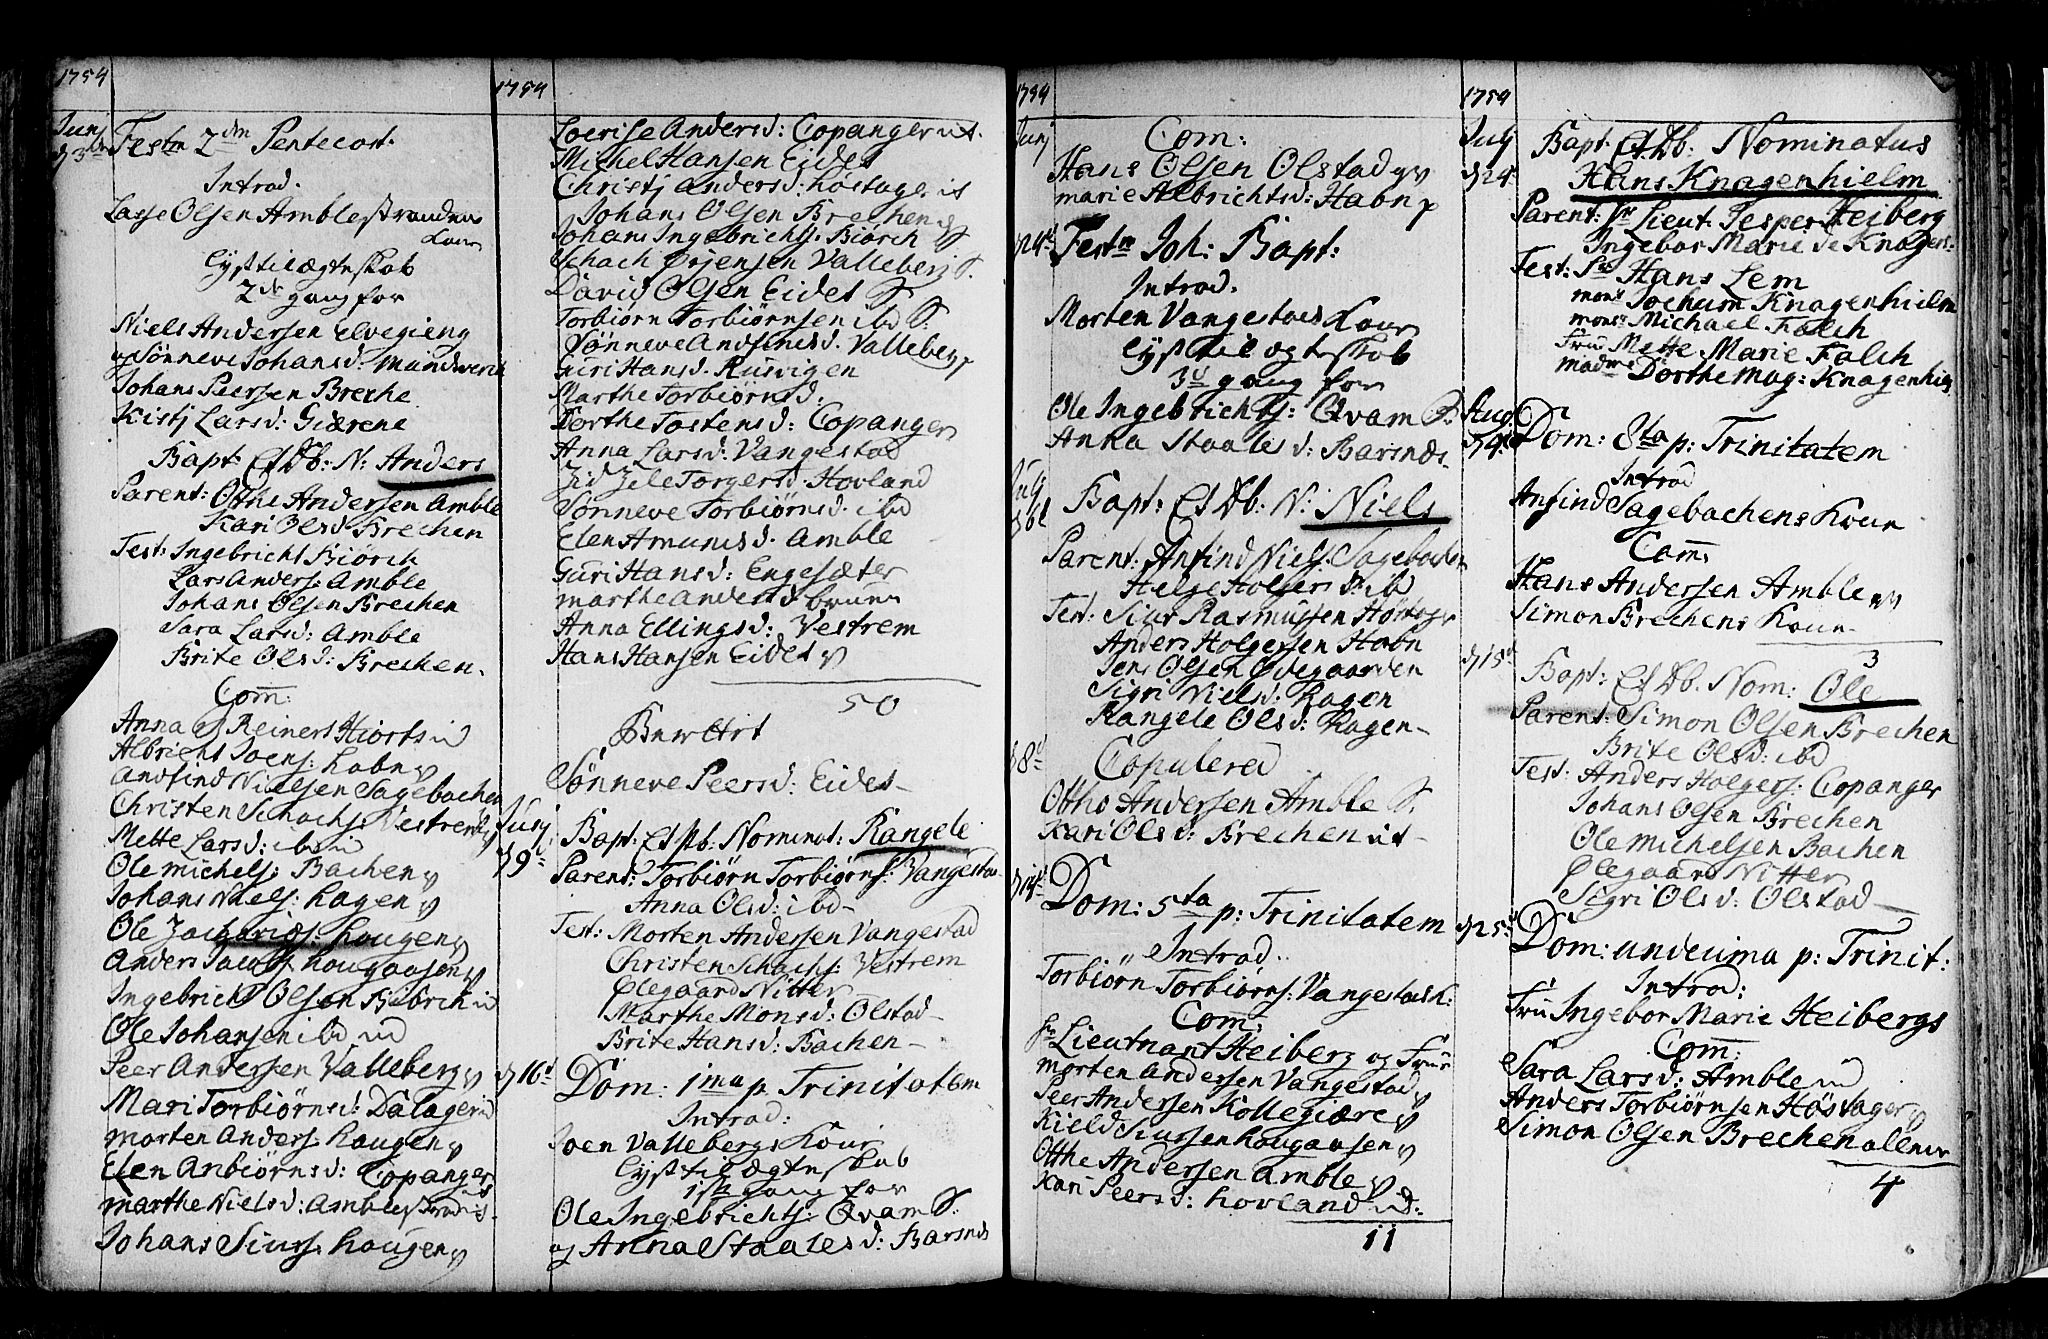 1754
Junj
d 3die
Festo 2dn Pentecost.
Introd.
Lasse Olsen Amblestrandens
Kone
Lyst til ægteskab
2de gang for
Niels Andersen Elvegieng
og Sønneve Johansd:
Johans Peersen Breche
Kistj Larsd: Giærene
Bapt: Et Db: N: Anders
Parent: Otthe Andersen Amble
Kari Olsd Brechen
Test: Ingebricht Biørch
Lars Anders: Amble
Johans Olsen Brechen
Sara Larsd: Amble
Brite Olsd: Brechen.
Com:
Anna Reiners Hiorts
Albricht Joens: Habn
Andfind Nielsen Sagebachen
Christen Schachs: Vestrem
Mette Larsd: ibd
Ole Michels: Bachen
Johans Niels: Hagen
Ole Zacharies: Hougen
Anders Jacobs: Hougaasen
Ingebricht Olsen Biørch
Ole Johansen ibd
Peer Andersen Valleberg
Mari Torbiørnsd: Dalager
Morten Anders: Hougen
Elen Anbiørnsd: Copanger
Marthe Nielsd: Amblestrand
Johans Siurs: Hougen
1754
Loerise Andersd: Copanger
Michel Hansen Eidet
Christj Andersd: Høstager
Johans Olsen Brechen
Johans Ingebrichts: Biørch S.
Schach Ørjensen Valleberg S.
David Olsen Eidet S.
Torbiørn Torbiørnsen ibd S:
Sønneve Andfinds d. Valleberg
Guri Hansd. Rusvigen
Marthe Torbiørnsd.
Dorthe Tostensd: Copanger
Anna Larsd: Vangestad
Zidzele Torgersd: Hovland
Sønneve Torbiørnsd. ibd
Elen Amundsd. Amble
Guri Hansd: Engesæter
Marthe Andersd
Anna Ellingsd: Vestrem
Hans Hansen Eidet
50
Sønneve Peersd: Eidet
Junj
d 9:
Bapt: Et Db. Nominat: Rangele
Parent: Torbiørn Torbiørns: Vangestad
Anna Olsd: ibd
Test: Morten Andersen Vangestad
Christen Schachs: Vestrem
Ølegaard Nitter
Marthe Monsd: Olstad
Brite Hansd: Bachen
d 16:
Dom: 1ma p. Trinitatem
Introd:
Joen Vallebergs Kone
Lyst til ægteskab
1ste gang for
Ole Ingebrichts: Qvam S.
og Anna Staalesd: Barsnes
1754
Junj
Com:
Hans Olsen Olstad
Marie Albrichtsd: Habn
d 24:
Festo Joh: Bapt:
Introd.
Morten Vangestads Kone
Lyst til ægteskab
3die gang for
Ole Ingebrichts: Qvam S.
Anna Staales d: Barsnes.
Julj
Bapt: Et Db. N: Niels
Parent: Anfind Niels: Sagebachen
Helge Holgersd: ibd
Test: Siur Rasmussen Høstager
Anders Holgersen Habn
Jens Olsen Ødegaarden
Sigri Nielsd: Hagen
Rangele Olsd: Hagen
d 8:
Copulered
Ottho Andersen Amble S.
Kari Olsd: Brechen
d 14:
Dom: 5ta p: Trinitatem
Introd:
Torbiørn Torbiørns: Vangestads K:
Com:
Hr Lieutnant Heiberg og Frue
Morten Andersen Vangestad
Peer Andersen Kollegiære
Kield Siursen Hougaasen
Otthe Andersen Amble
Kari Peersd: Hovland
11
1754
Julj
d 24:
Bapt: Et Db: Nominatus
Hans Knagenhielm
Parent: Hr Lieut. Jesper Heiberg
Ingebor Marie de Knagens:
Test: Sr Hans Lem
Monsr Jochum Knagenhielm
Monsr Michael Falch
Frue Mette Marie Falch
Madme Dorthe Mag: Knagenhielm
Aug:
d 4:
Dom: 8ta p: Trinitatem
Introd
Anfind Sagebachens Kone
Com:
Hans Andersen Amble
Simon Brechens Kone
3
d 15:
Bapt: Et Db. Nom: Ole
Parent: Simon Olsen Brechen
Brite Olsd: ibd
Test: Anders Holgers: Copanger
Johans Olsen Brechen
Ole Michelsen Bachen
Ølegaard Nitter
Sigri Olsd: Olstad
d 25:
Dom: undecima p: Trinit:
Introd:
Fru Ingebor Marie Heibergs
Com:
Sara Larsd: Amble
Anders Torbiørnsen Høstager
Simon Olsen Brechen allene
4